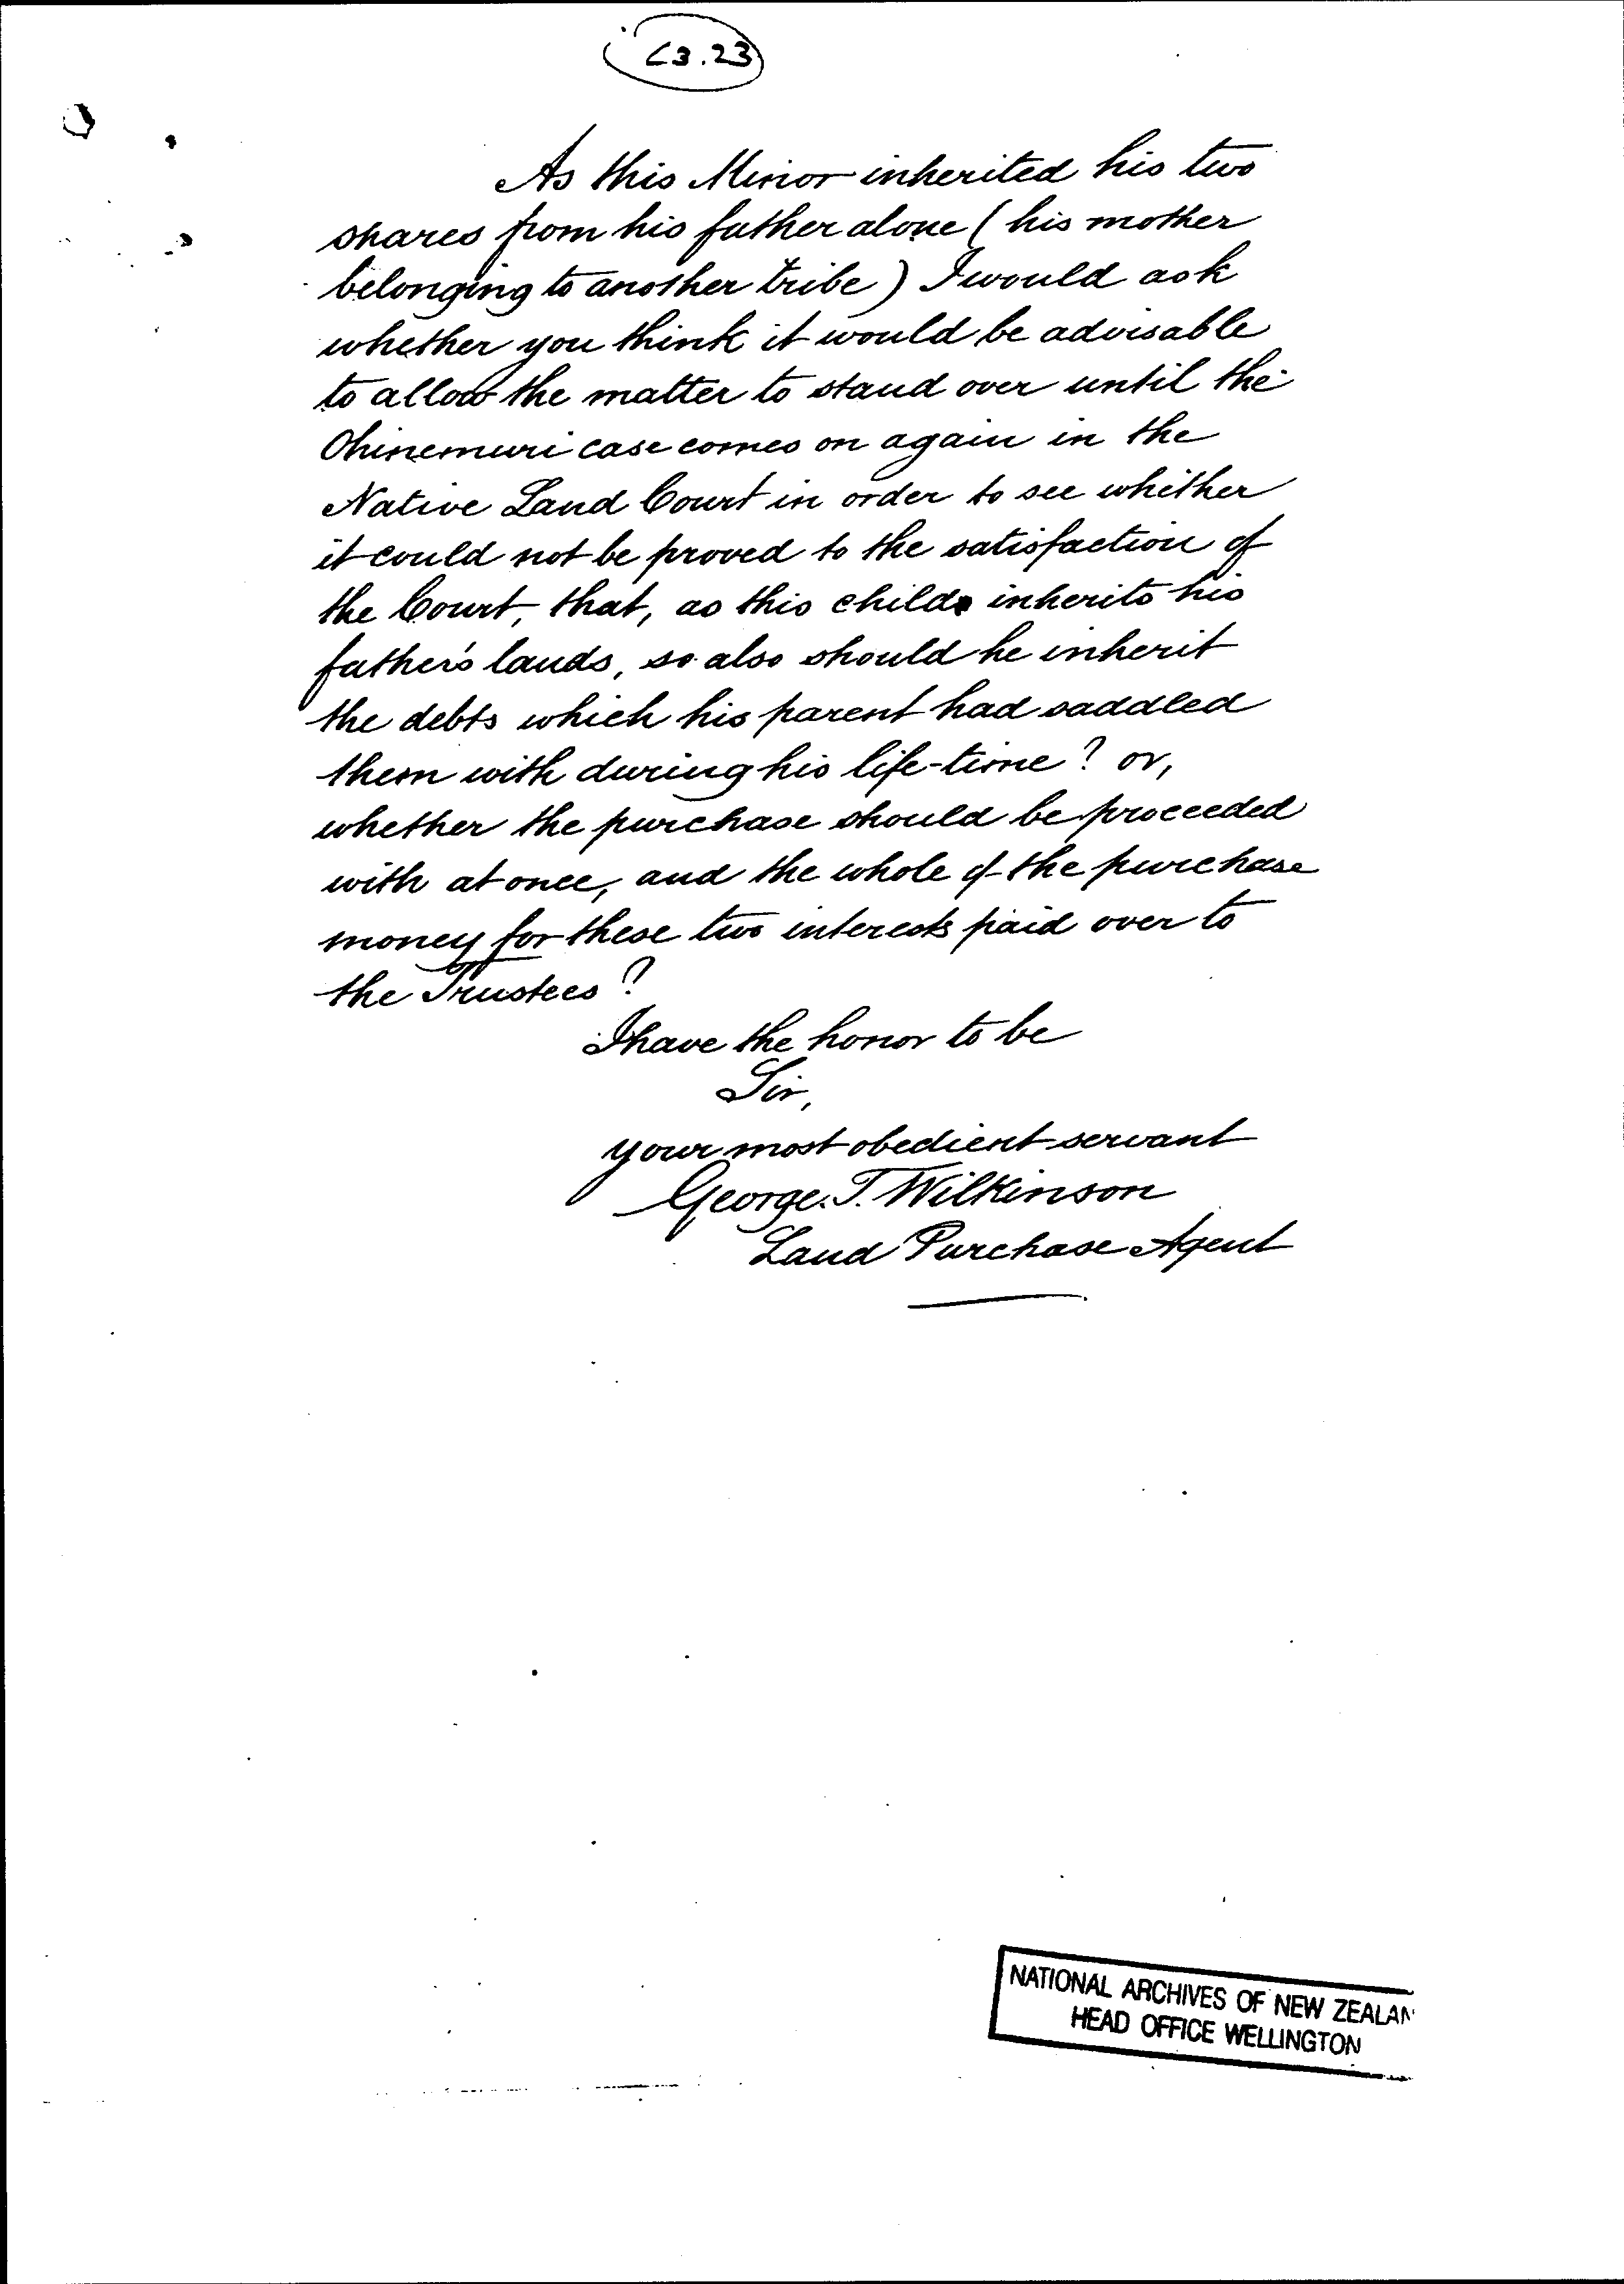 C3.23
As this Minor inherited his two
shares from his father alone (his mother
belonging to another tribe) I would ask
whether you think it would be advisable
to allow the matter to stand over until the
Ohinemuri case comes on again in the
Native Land Court in order to see whether
it could not be proved to the satisfaction of
the Court, that, as this child inherits his
father's lands, so also should he inherit
the debts which his parent had saddled
them with during his life-time? or,
whether the purchase should be proceeded
with at once, and the whole of the purchase
money for these two interests paid over to
the Trustees?
I have the honor to be
Sir,
your most obedient servant
George. T. Wilkinson
Land Purchase Agent
NATIONAL ARCHIVES OF NEW ZEALAN
HEAD OFFICE WELLINGTON